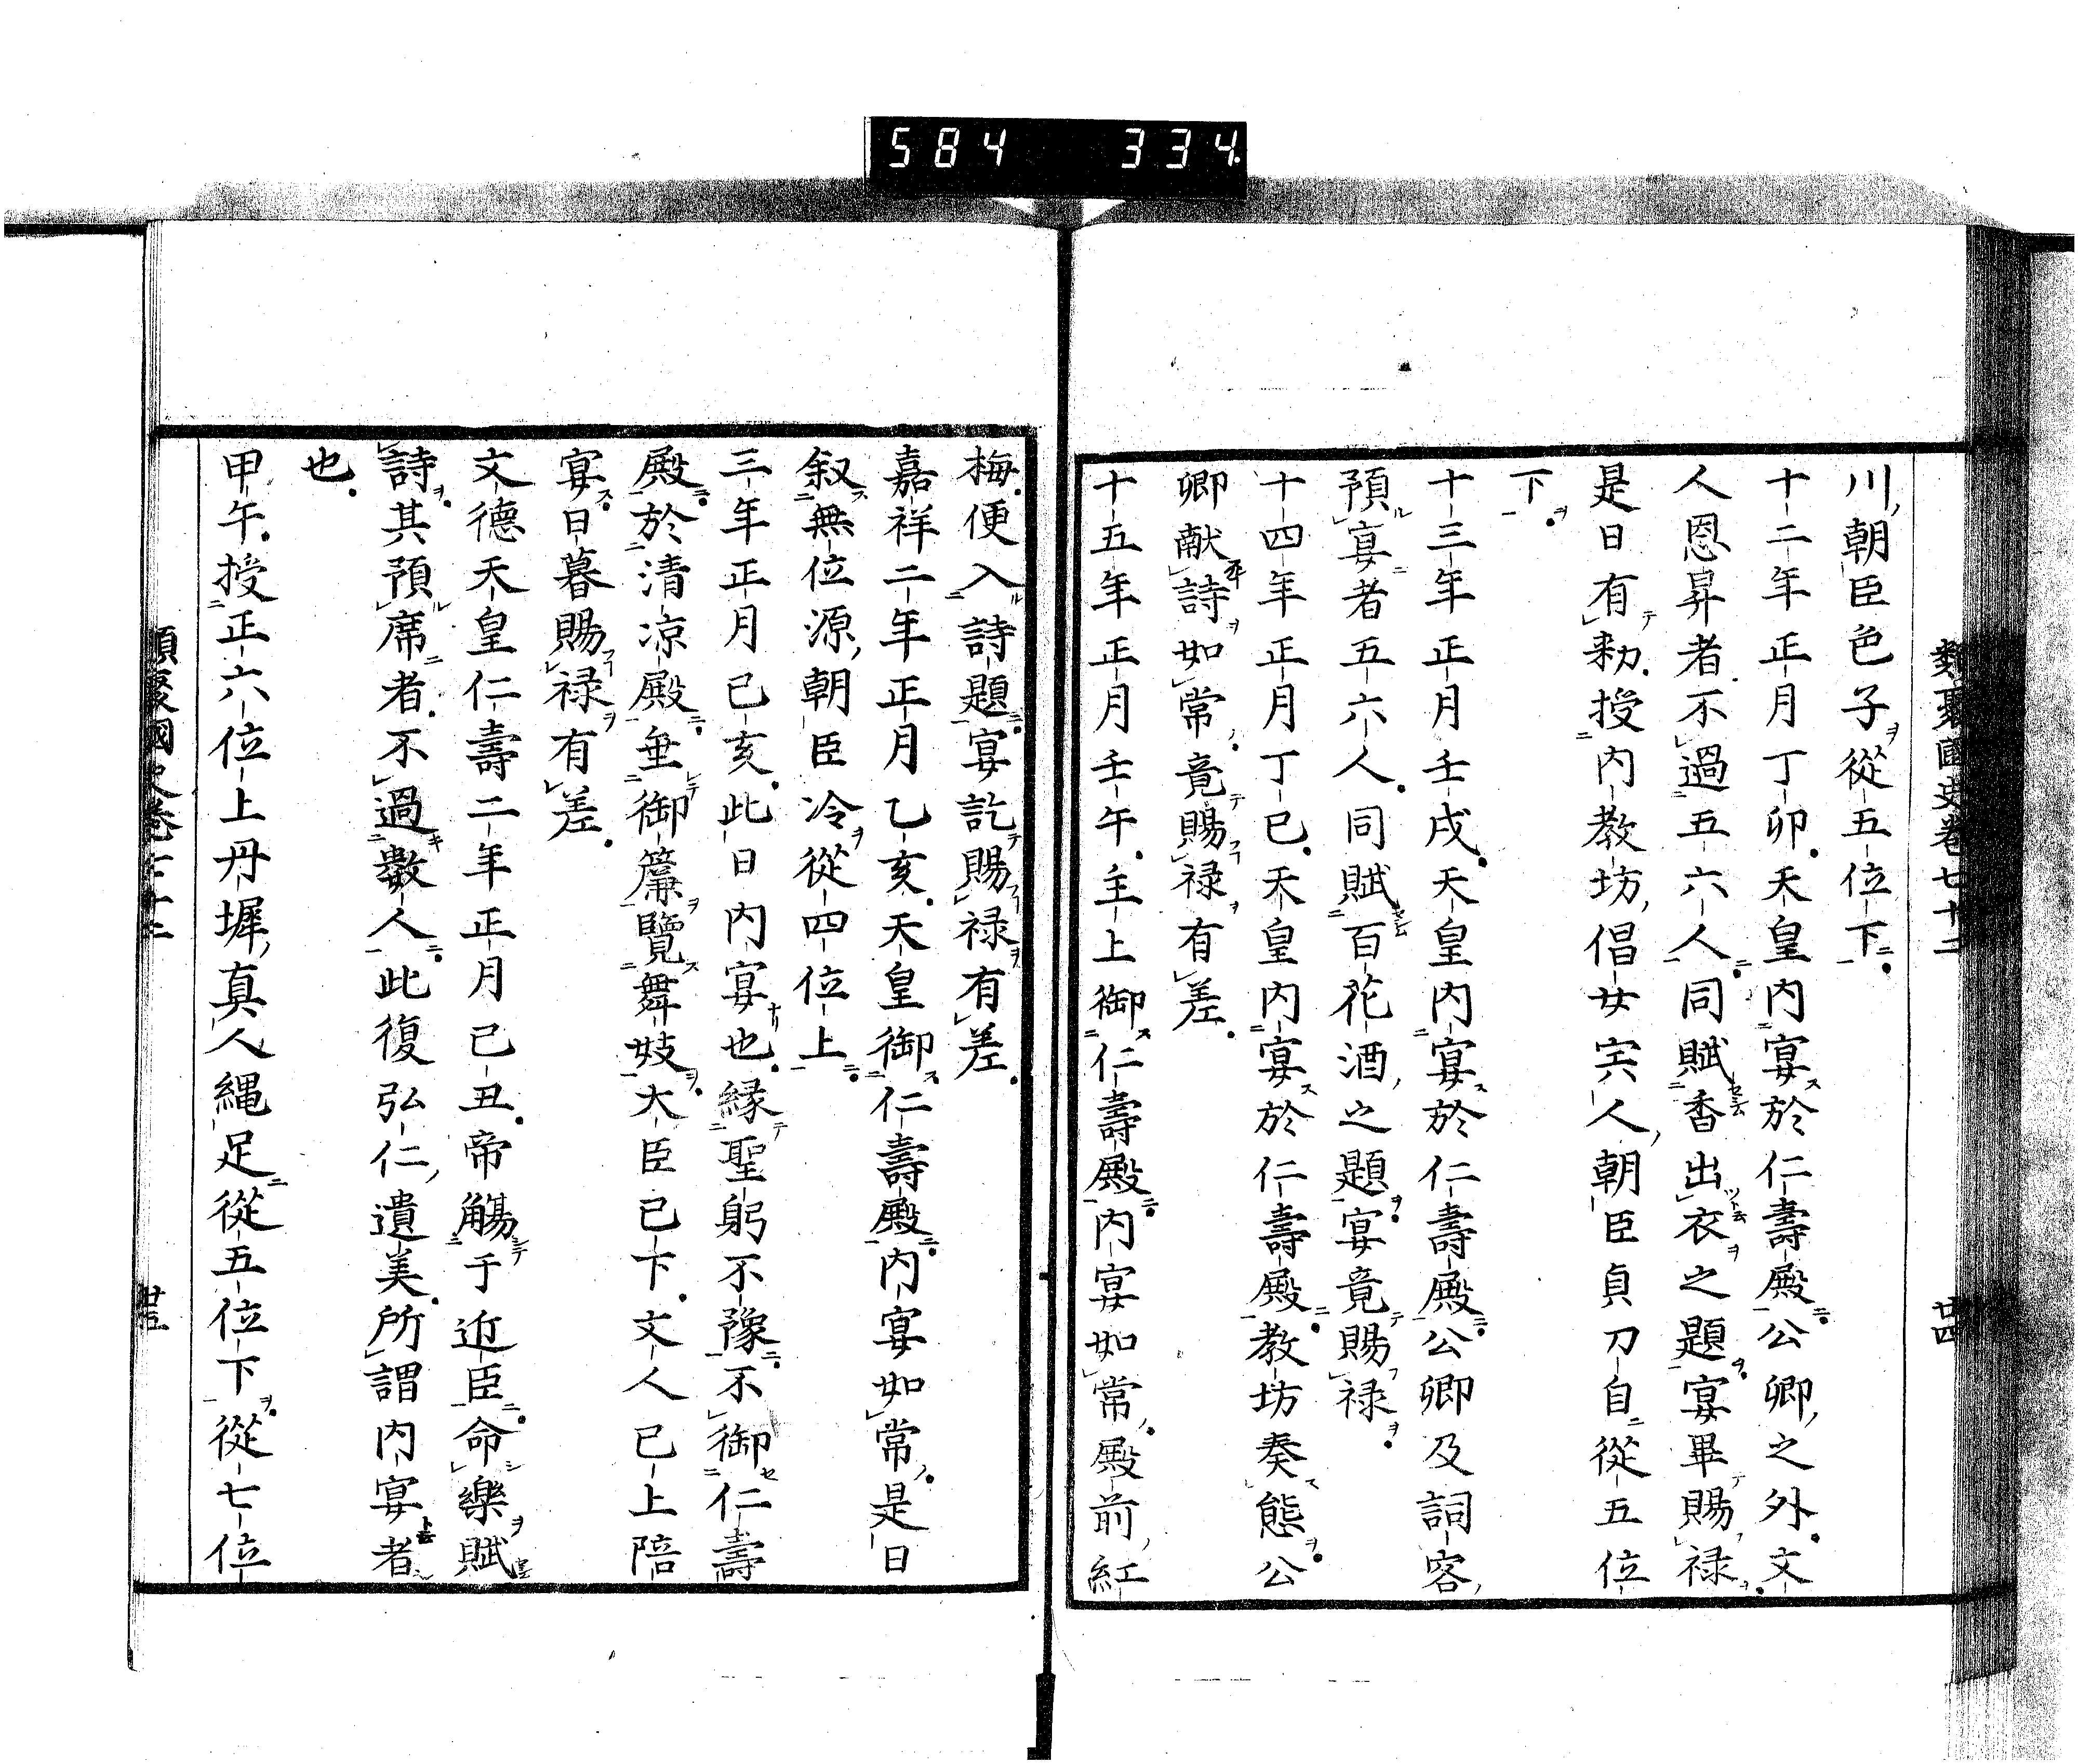 584 334
類聚國史卷七十二 廿四
川朝臣色子從五位下
十二年正月丁卯天皇内宴於仁壽殿公卿之外文
人恩昇者不過五六人同賦香出衣之題宴畢賜禄
是日有勅授内教坊倡女完人朝臣貞刀自從五位
下
十三年正月壬戌天皇内宴於仁壽殿公卿及詞客
預宴者五六人同賦百花酒之題宴竟賜禄
十四年正月丁巳天皇内宴於仁壽殿教坊奏態公
卿献詩如常竟賜禄有差
十五年正月壬午主上御仁壽殿内宴如常殿前紅
梅便入詩題宴訖賜禄有差
嘉祥二年正月乙亥天皇御仁壽殿内宴如常是日
叙無位源朝臣冷從四位上
三年正月己亥此日内宴也縁聖躬不豫不御仁壽
殿於清凉殿垂御簾覽舞妓大臣已下文人已上陪
宴日暮賜禄有差
文德天皇仁壽二年正月己丑帝觴于近臣命樂賦
詩其預席者不過數人此復弘仁遺美所謂内宴者
也
甲午授正六位上丹墀真人縄足從五位下從七位
類聚國史卷七十二 廿五